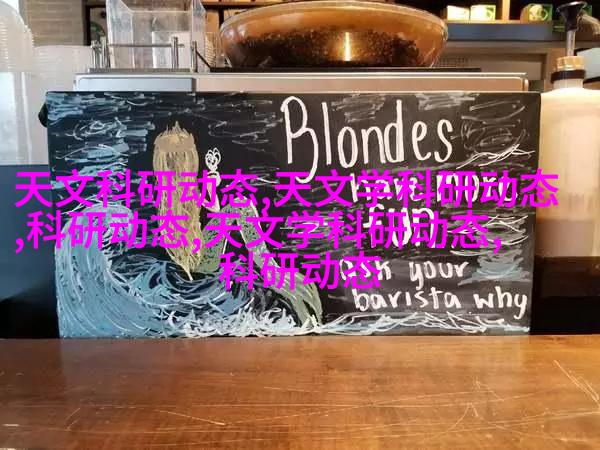 Blondes
天文科研动态,天文学科研动态
,科研动态,天文学科研动态,
科研动态
your
barista why